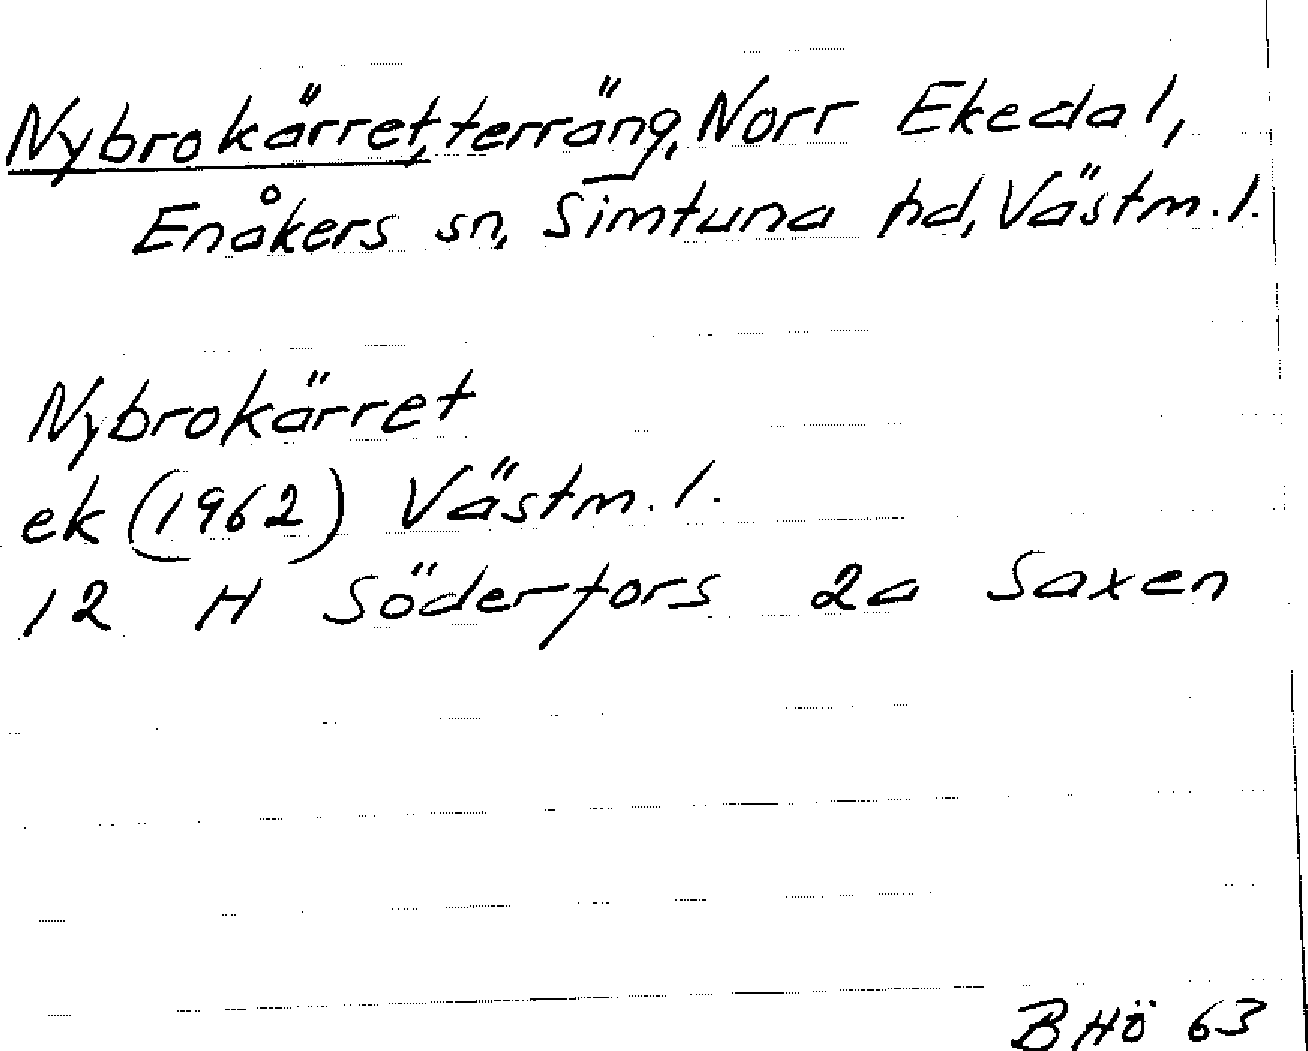 Nybrokärret, terräng, Norr Ekedal,
Enåkers sn, Simtuna hd, Västm. l.
Nybrokärret
ek (1962) Västm. l.
12 H Söderfors 2a Saxen
BHö 63